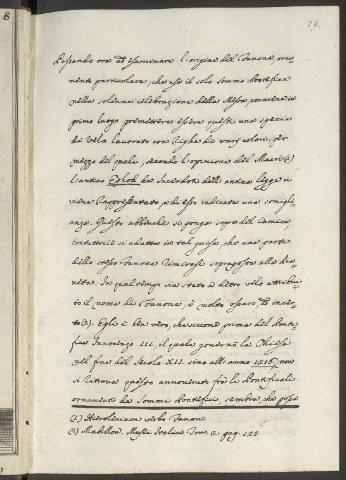 8
72.
Passando ora ad esaminare l'origine del Fanone, orna=
mento particolare, che usa il solo Sommo Pontefice
nella solenne celebrazione della Messa, conviene in
primo luogo premettere essere questi una specie
di velo lavorato con righe di varj colori, per
mezzo del quale, secondo l'opinione del Macri (1)
l'antico Ephod de Sacerdoti dell'antica legge ci
viene rappresentato, o di esso indicata una somigli=
anza. Questo abbenche si ponga sopra del Camice,
contuttociò si adatta in tal guisa, che una parte
dello stesso Fanone rimirasi soprapposta alla Pia=
neta. In qual tempo sia stato a detto velo attribui=
to il nome di Fanone, è molto oscuro ed incer=
to (2). Egli è ben vero, che siccome prima del Ponte=
fice Innocenzo III, il quale governò la Chiesa
nel fine del Secolo XII sino all'anno 1216, non
si ritrova questo annoverato frà li Pontificali
ornamenti de Sommi Pontefici, sembra, che possa
(1) Hierolexicon verbo Fanon.
(2) Mabillon. Musei Italici Tom. 2. pag. 128.